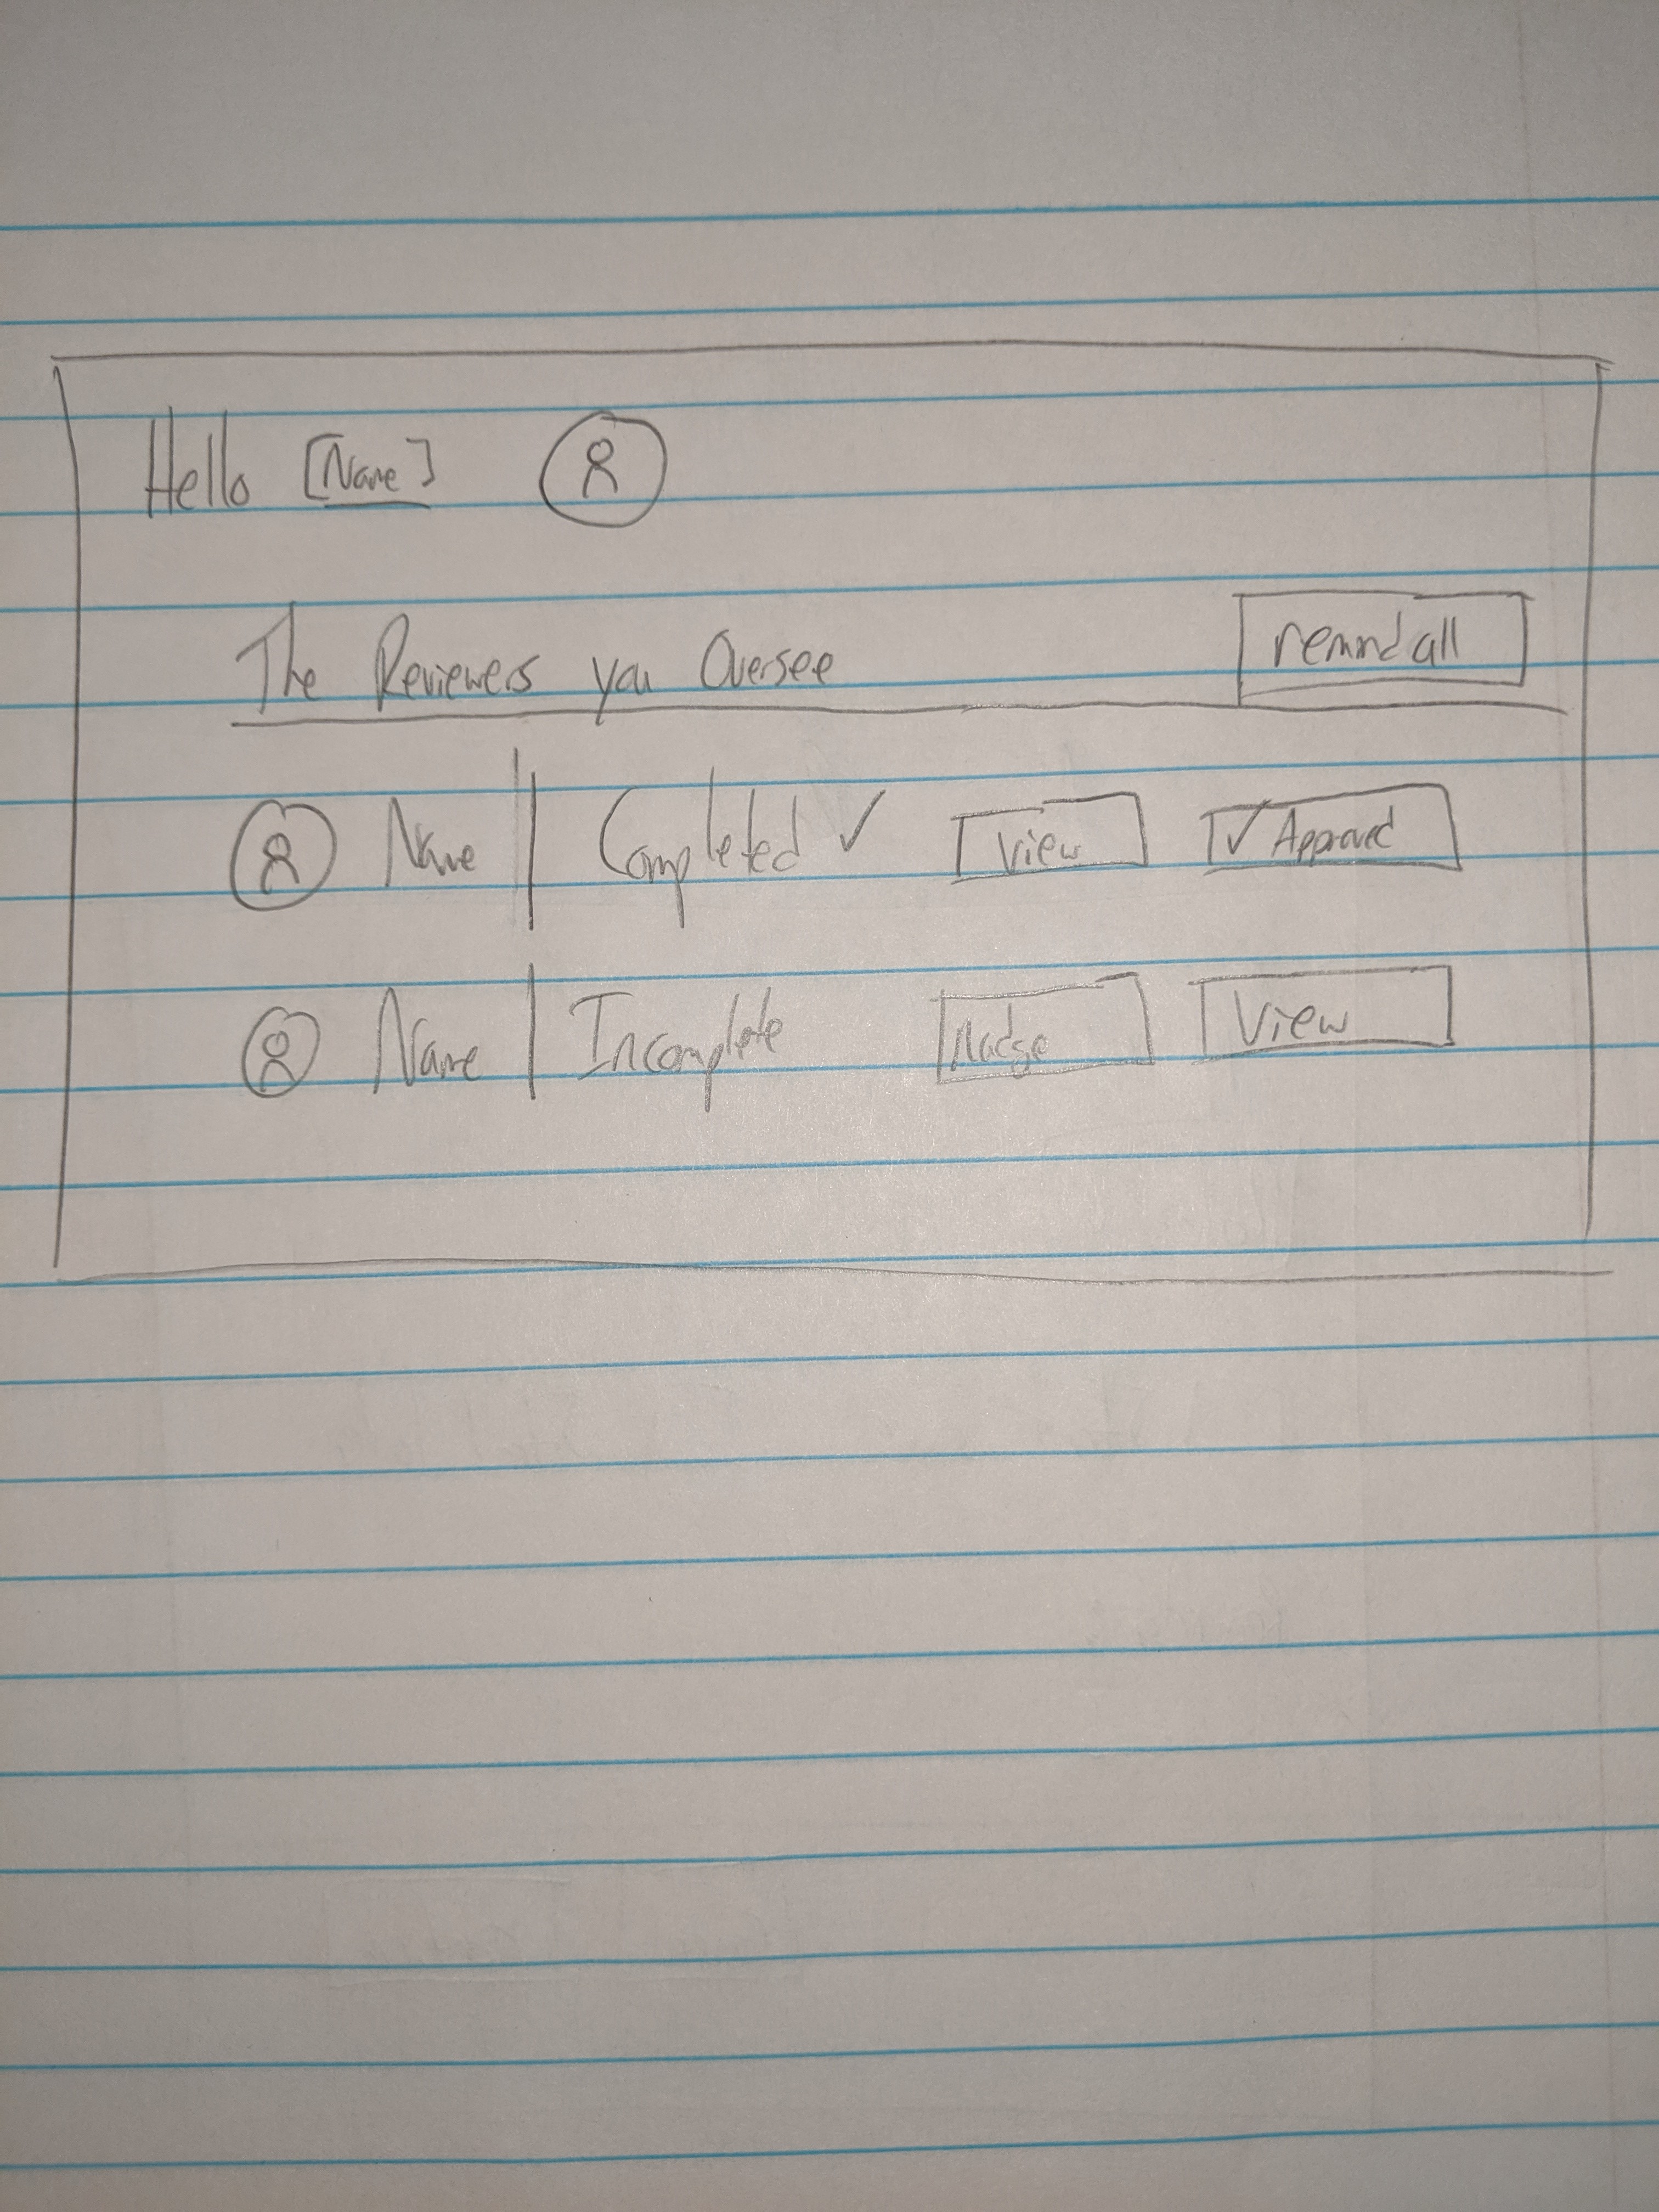 Hello [Name]
The Reviewers you Oversee remind all
Name | Completed ✓ View ✓ Approved
Name | Incomplete Nudge View